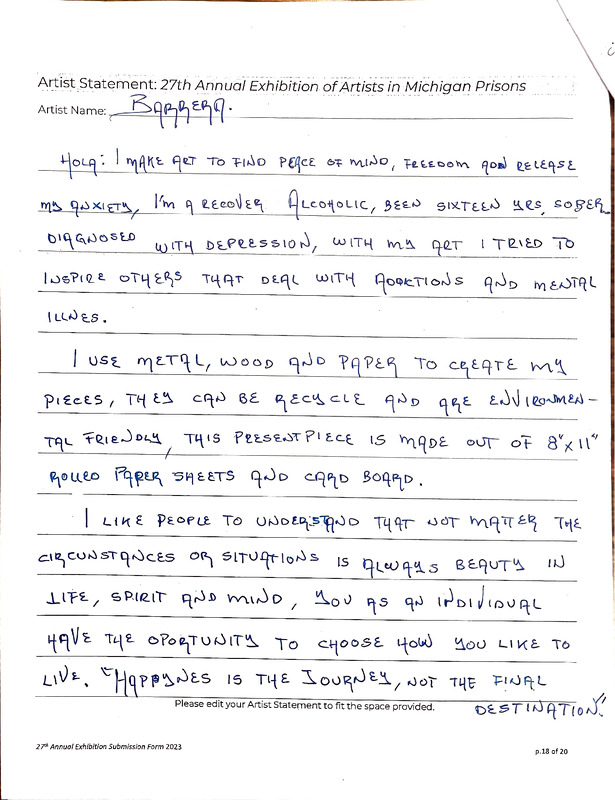 Artist Statement: 27th Annual Exhibition of Artists in Michigan Prisons
Artist Name: BARRERA.
HOLA: I MAKE ART TO FIND PEACE OF MIND, FREEDOM AND RELEASE
MY ANXIETY, I'M A RECOVER ALCOHOLIC, BEEN SIXTEEN YRS, SOBER
DIAGNOSED WITH DEPRESSION, WITH MY ART I TRIED TO
INSPIRE OTHERS THAT DEAL WITH ADDICTIONS AND MENTAL
ILLNES.
I USE METAL, WOOD AND PAPER TO CREATE MY
PIECES, THEY CAN BE RECYCLE AND ARE ENVIRONMEN-
TAL FRIENDLY, THIS PRESENT PIECE IS MADE OUT OF 8"x11"
ROLLED PAPER SHEETS AND CARD BOARD.
I LIKE PEOPLE TO UNDERSTAND THAT NOT MATTER THE
CIRCUNSTANCES OR SITUATIONS IS ALWAYS BEAUTY IN
LIFE, SPIRIT AND MIND, YOU AS AN INDIVIDUAL
HAVE THE OPORTUNITY TO CHOOSE HOW YOU LIKE TO
LIVE. "HAPPYNES IS THE JOURNEY, NOT THE FINAL
DESTINATION."
Please edit your Artist Statement to fit the space provided.
27th Annual Exhibition Submission Form 2023
p.18 of 20